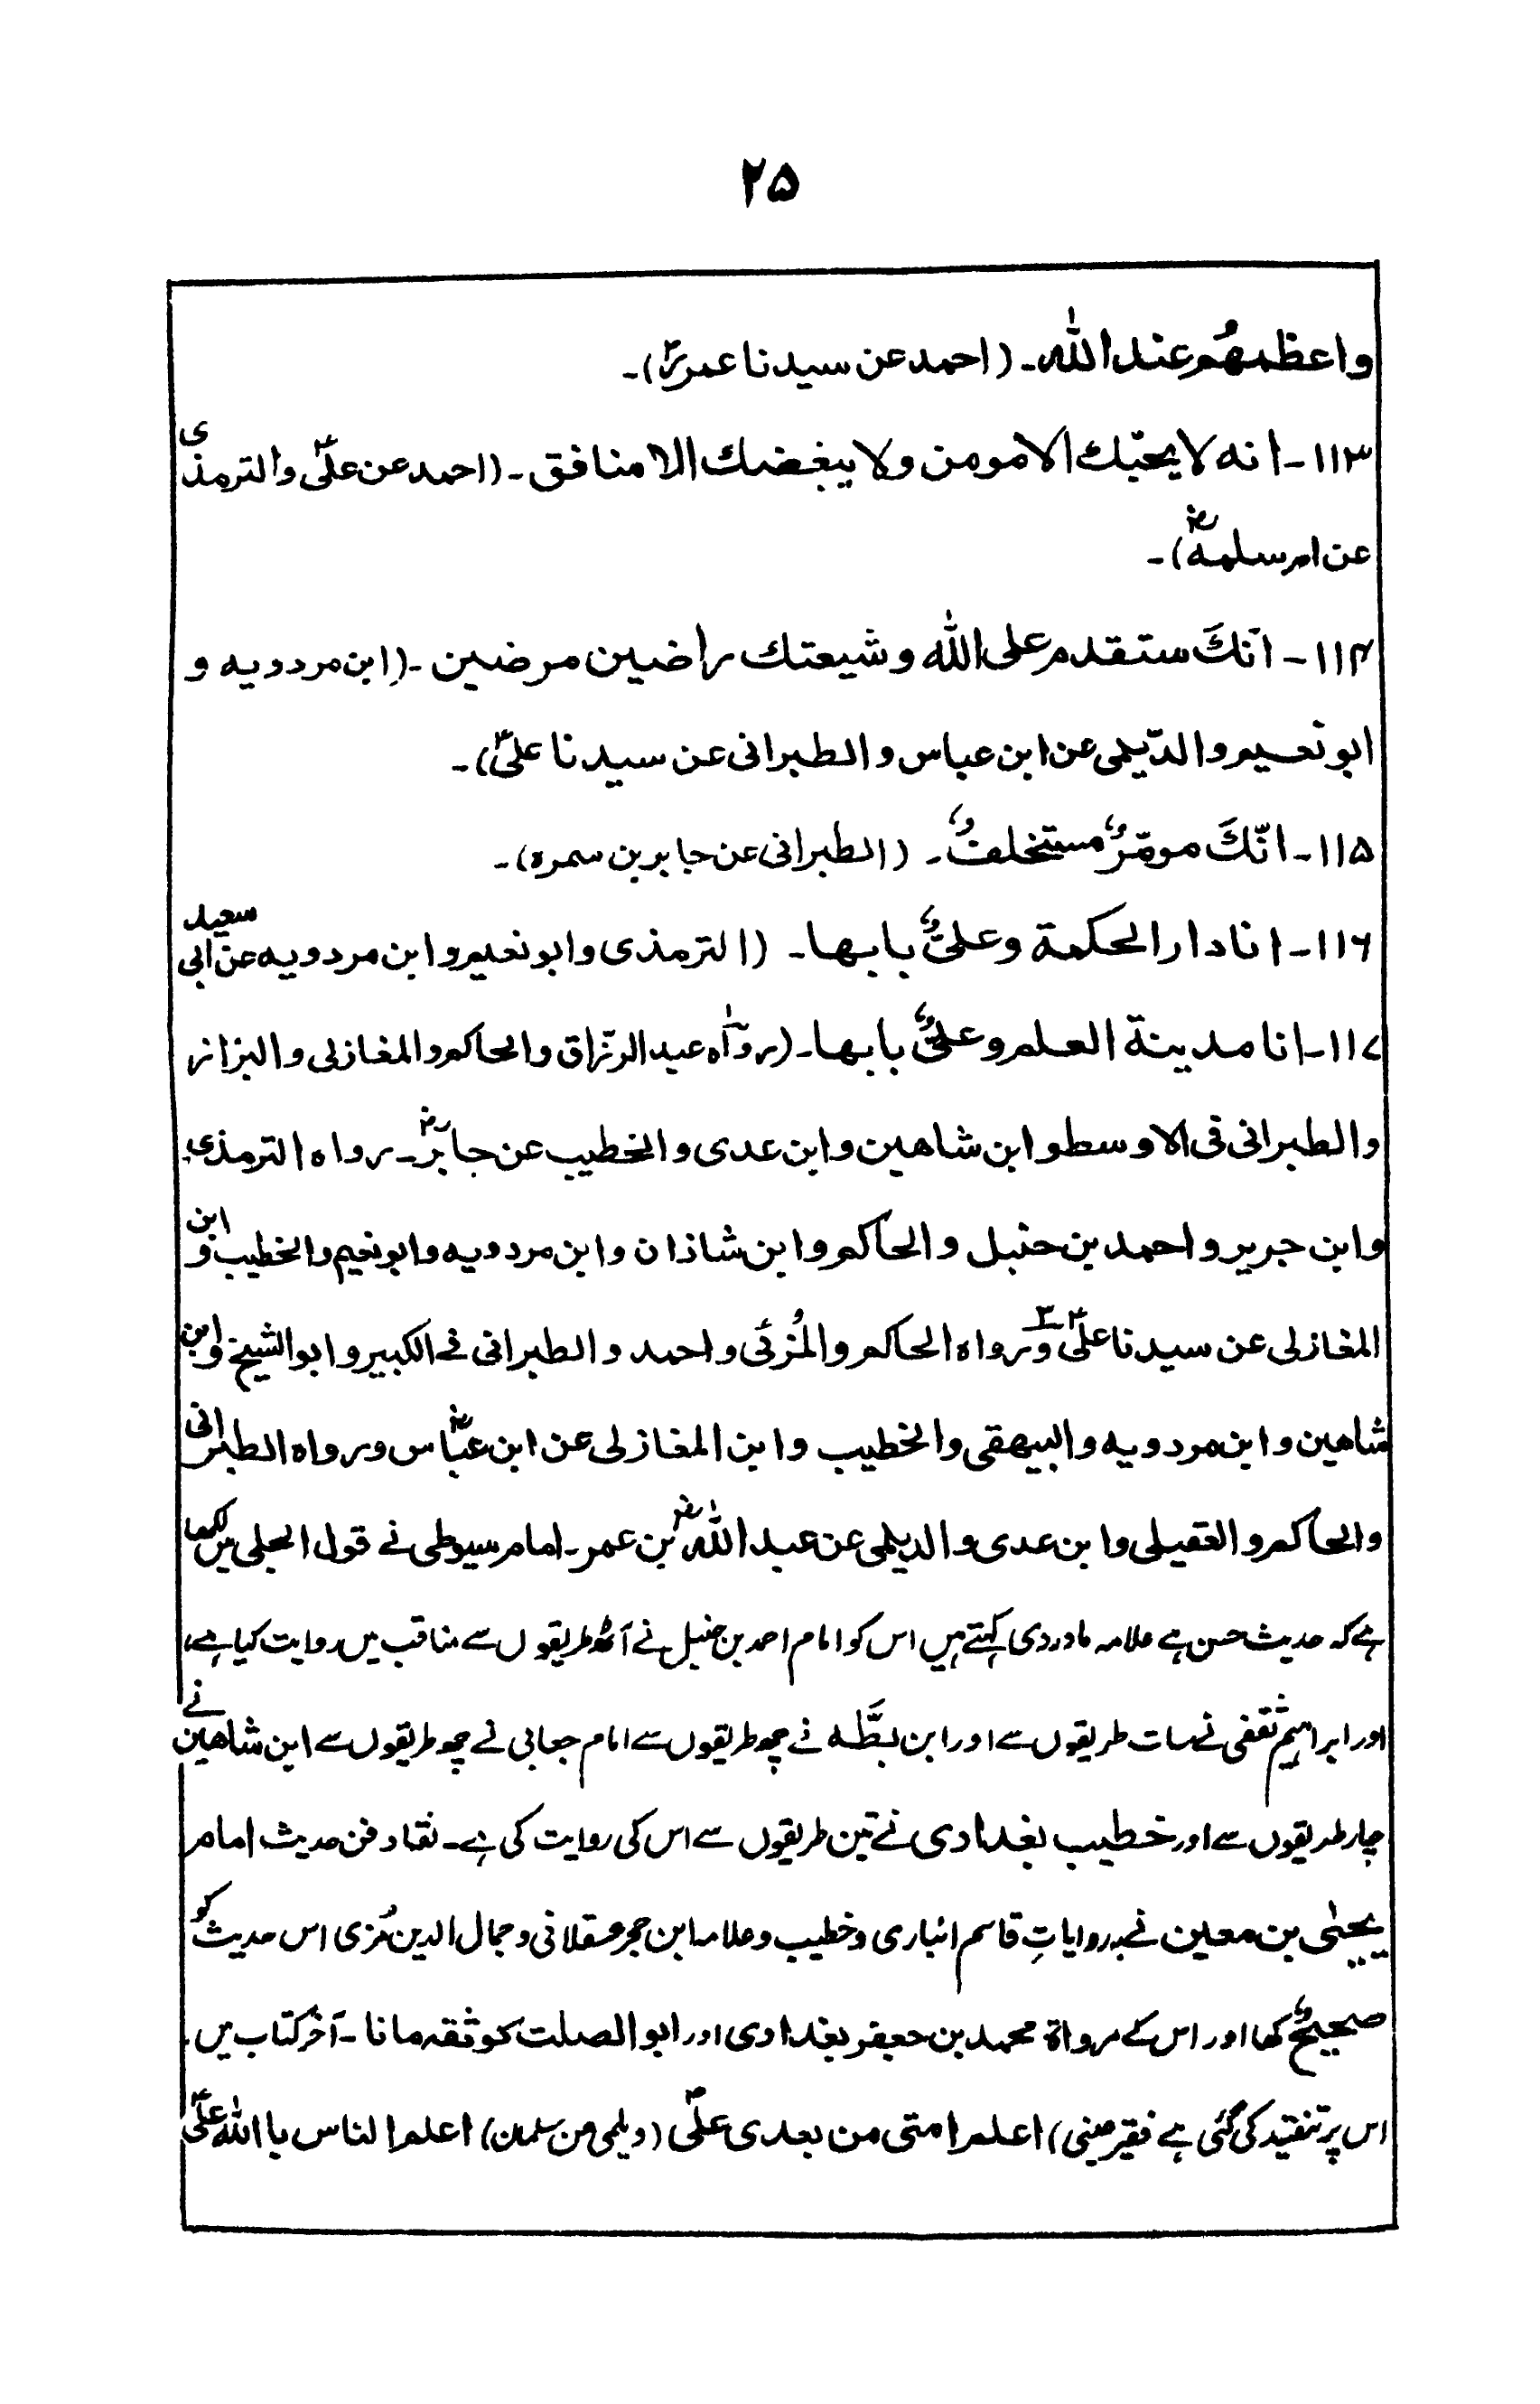 ۲۵
واعظمهُم عند اللّٰه۔ (احمد عن سیدنا عمرؓ)۔
۱۱۳۔ انه لا یحبّك الا مومن ولا یبغضك الا منافق۔ (احمد عن علیؑ والترمذی
عن ام سلمهؓ)۔
۱۱۴۔ انّكَ ستقدم علی اللّٰه وشیعتك راضین مرضین۔ (ابن مردویه و
ابونعیم والدّیلمی عن ابن عباس والطبرانی عن سیدنا علیؑ)۔
۱۱۵۔ انّكَ مومّرٌ مستخلفٌ۔ (الطبرانی عن جابر بن سمره)۔
۱۱۶۔ انا دار الحکمة وعلیٌّ بابها۔ (الترمذی وابونعیم وابن مردویه عن ابی سعید
۱۱۷۔ انا مدینة العلم وعلیٌّ بابها۔ (رواه عبد الرزّاق والحاکم والمغازلی والبزاز
والطبرانی فی الاوسط وابن شاهین وابن عدی والخطیب عن جابرؓ۔ رواه الترمذی
وابن جریر واحمد بن حنبل والحاکم وابن شاذان وابن مردویه وابونعیم والخطیب وابن
المغازلی عن سیدنا علیؑ ورواه الحاکم والمُزَنی واحمد والطبرانی فی الکبیر وابوالشیخ وابن
شاهین وابن مردویه والبیهقی والخطیب وابن المغازلی عن ابن عبّاسؓ ورواه الطبرانی
والحاکم والعقیلی وابن عدی والدیلمی عن عبد اللّٰهؓ بن عمر۔ امام سیوطی نے قول الجلی میں لکھا
ہے کہ حدیث حسن ہے علامہ ماوردی کہتے ہیں اس کو امام احمد بن حنبل نے آٹھ طریقوں سے مناقب میں روایت کیا ہے،
اور ابراہیم ثقفی نے سات طریقوں سے اور ابن بطَّہ نے چھ طریقوں سے امام جعابی نے چھ طریقوں سے ابن شاهین نے
چار طریقوں سے اور خطیب بغدادی نے تین طریقوں سے اس کی روایت کی ہے۔ نقاد فن حدیث امام
یحییٰ بن معین نے بہ روایاتِ قاسم انباری و خطیب و علامہ ابن حجر عسقلانی و جمال الدین مُزی اس حدیث کو
صحیحٌ کہا اور اس کے رواۃ محمد بن جعفر بغدادی اور ابو الصلت کو ثقہ مانا۔ آخر کتاب میں
اس پر تنقید کی گئی ہے فقیر) اعلم امتی من بعدی علیؑ (دیلمی من سلمان) اعلم الناس باللّٰه علیؑ